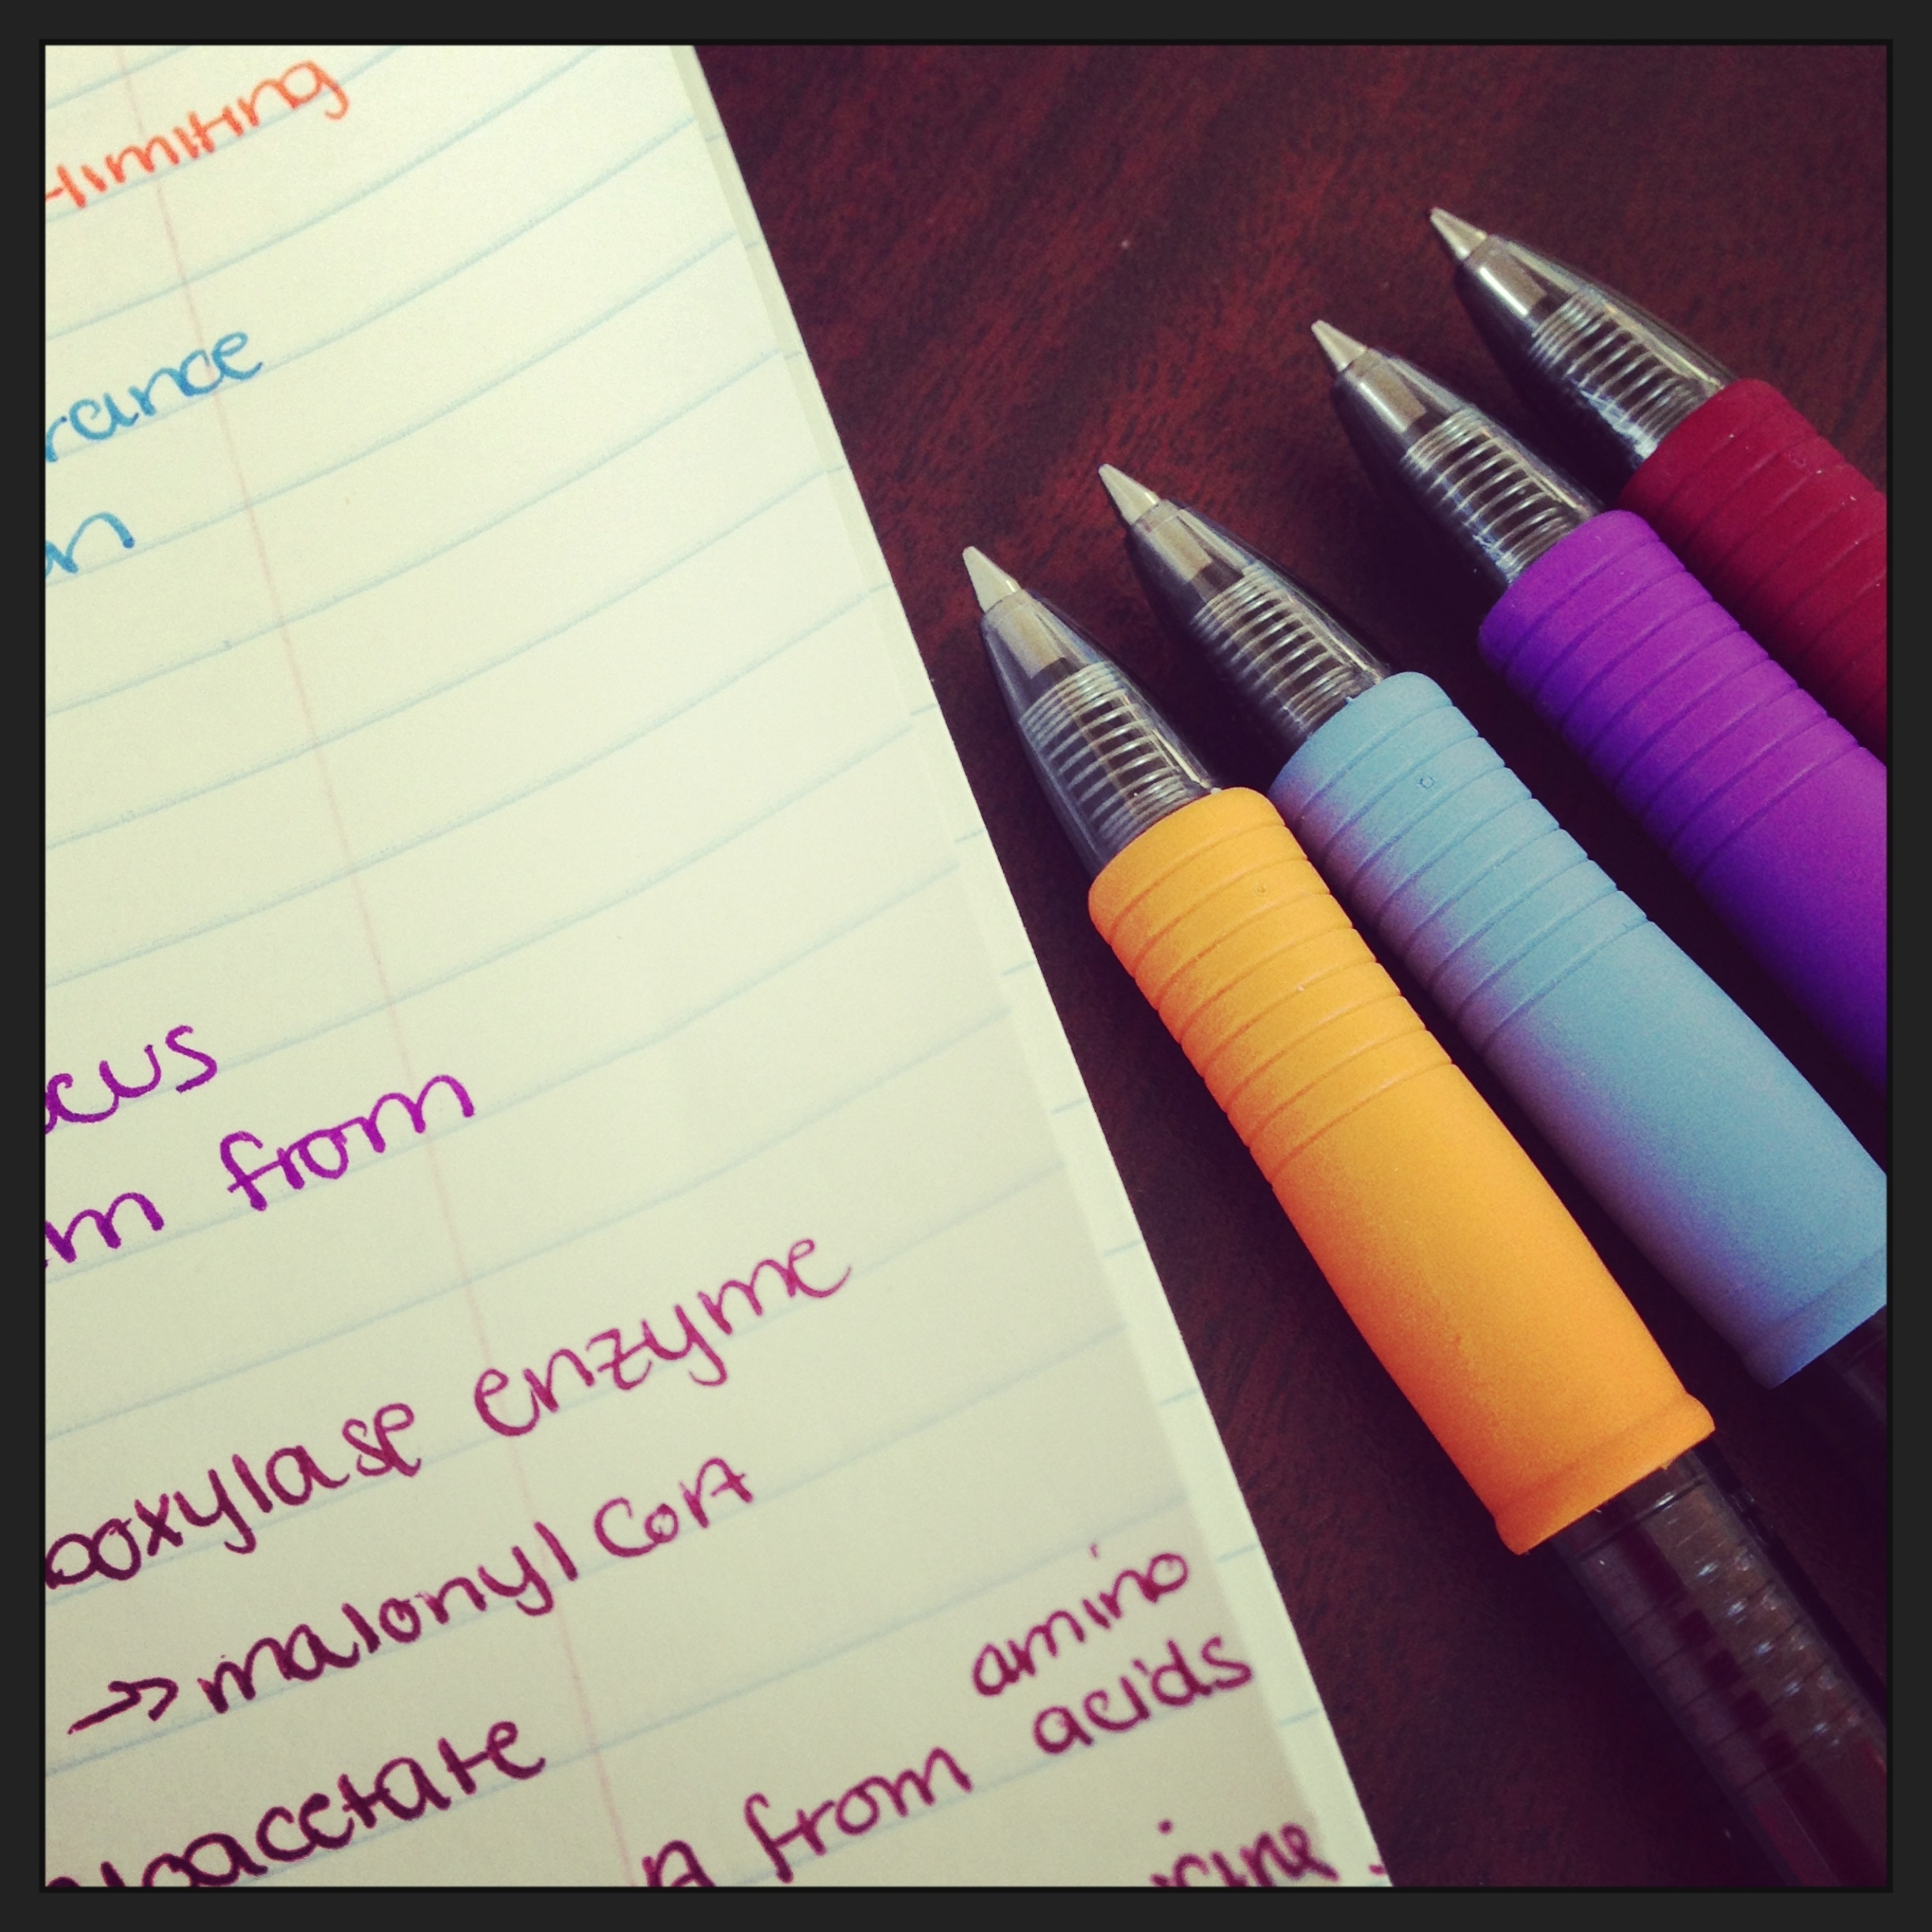 -limiting
rance
an
cus
m from
boxylase enzyme
→ malonyl CoA
loacetate
amino
acids
A from
icine